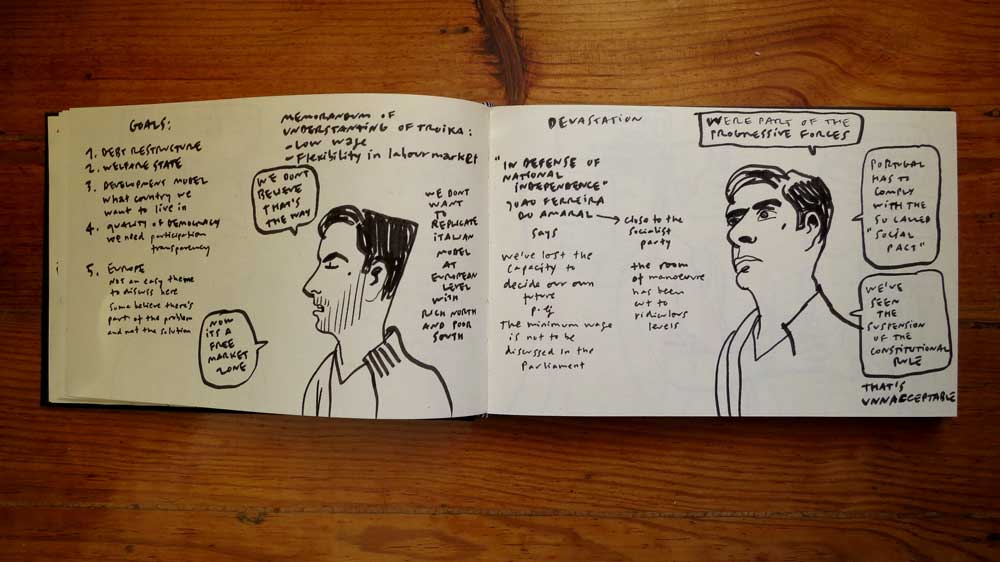 GOALS:
1. DEBT RESTRUCTURE
2. WELFARE STATE
3. DEVELOPMENT MODEL
what country we
want to live in
4. QUALITY OF DEMOCRACY
we need participation
transparency
5. EUROPE
NOT an easy theme
to discuss here
Some believe there's
part of the problem
and not the solution
MEMORANDUM OF
UNDERSTANDING OF TROIKA:
- LOW wage
- Flexibility in labour market
WE DON'T
BELIEVE
THAT'S
THE WAY
NOW
ITS A
FREE
MARKET
ZONE
WE DONT
WANT
TO
REPLICATE
ITALIAN
MODEL
AT
EUROPEAN
LEVEL
WITH
RICH NORTH
AND POOR
SOUTH
DEVASTATION
"IN DEFENSE OF
NATIONAL
INDEPENDENCE"
JOAO FERREIRA
DO AMARAL →
says
close to the
socialist
party
we've lost the
capacity to
decide our own
future
p. eg
The minimum wage
is not to be
discussed in the
Parliament
the room
of manoeuvre
has been
cut to
ridiculous
levels
WERE PART OF THE
PROGRESSIVE FORCES
PORTUGAL
HAS TO
COMPLY
WITH THE
SO CALLED
"SOCIAL
PACT"
WE'VE
SEEN
THE
SUSPENSION
OF THE
CONSTITUTIONAL
RULE
THAT'S
UNNACCEPTABLE